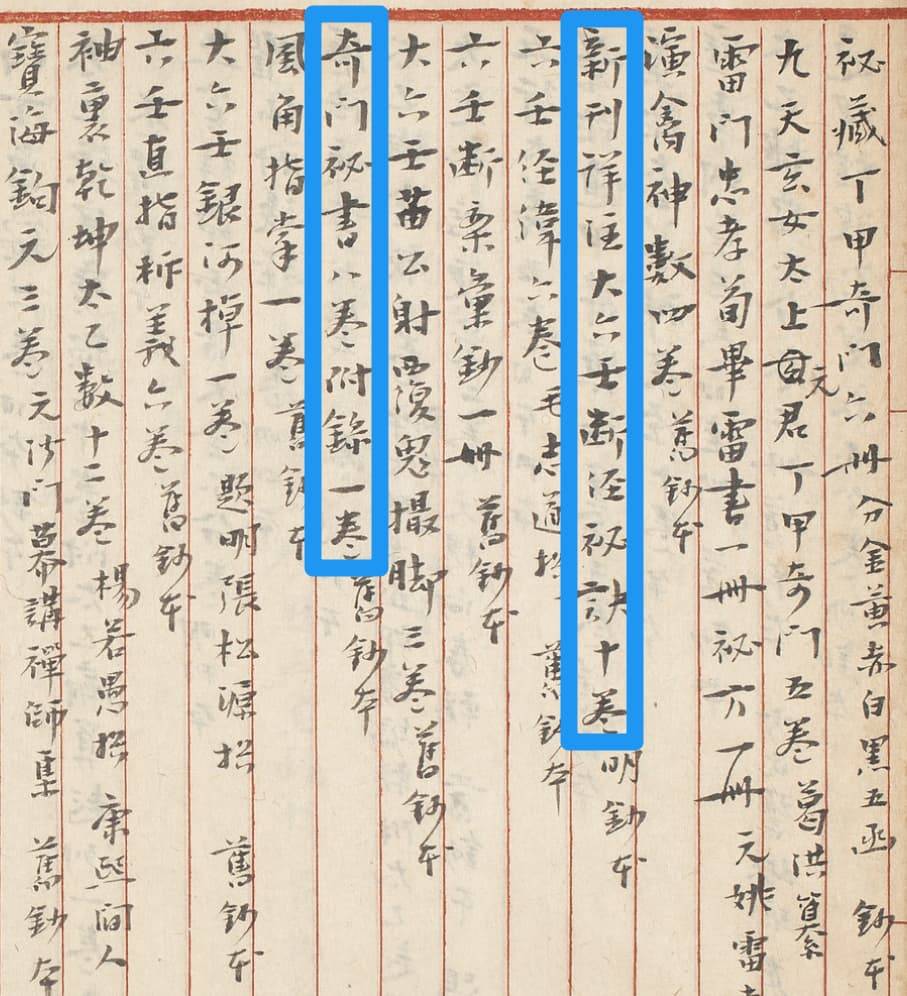 祕藏丁甲奇门六冊 分金黄赤白黑五函 鈔本
九天玄女太上元君丁甲奇门五卷 葛洪纂
雷门忠孝荀畢雷書一冊祕方一冊 元姚雷
演禽神數四卷 舊鈔本
新刊詳注大六壬断泾祕訣十卷 明鈔本
六壬经濟六卷 毛志道 舊鈔本
六壬断案彙鈔一冊 舊鈔本
大六壬苗公射覆鬼撮脚三卷 舊鈔本
奇门祕書八卷附錄一卷 舊鈔本
風角指掌一卷 舊鈔本
大六壬銀河棹一卷 题明張松源 舊鈔本
六壬直指析義六卷 舊鈔本
袖裏乾坤太乙數十二卷 楊若愚 康熙间人
寶海鈎元三卷 元沙门慕講禪師集 舊鈔本